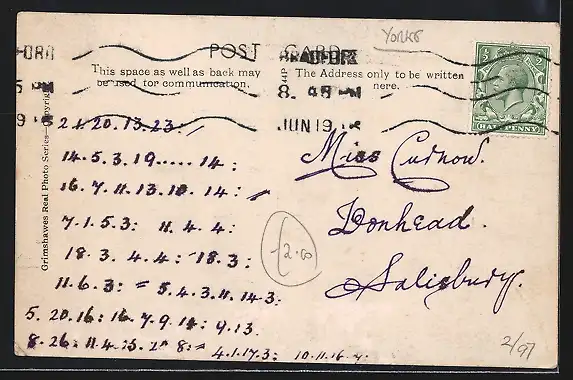 Yorks
POST CARD
BRADFORD
8. 45 PM
JUN 19
This space as well as back may
be used for communication.
The Address only to be written
here.
HALFPENNY
Grimshawes Real Photo Series
2.1.20.13.23:
14.5.3.19.....14:
16.7.11.13.18.14:
7.1.5.3: 11.4.4:
18.3. 4.4: 18.3:
11.6.3: = 5.4.3.11.14.3:
5. 20.16: 16.7.9.14: 9.13.
8.26: 11.4: 8: = 4.1.17.3: 10.11.16.7:
Miss Curnow.
Donhead.
Salisbury.
2/97